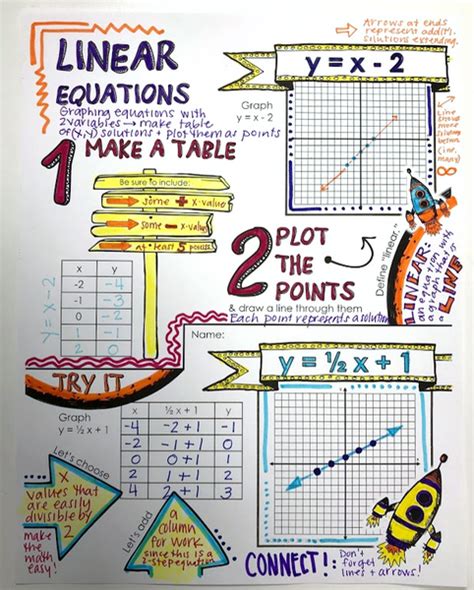 LINEAR
EQUATIONS
Graphing equations with
2 variables → make table
of (x,y) solutions + plot them as points
1 MAKE A TABLE
Be sure to include:
some + x-values
some - x-values
at least 5 points
y = x - 2
x y
-2 -4
-1 -3
0 -2
1 -1
2 0
Arrows at ends
represent addit'l
solutions extending.
y = x - 2
Graph
y = x - 2
Line
∞
2 PLOT
THE
POINTS
& draw a line through them
Each point represents a solution
Define "linear."
LINEAR:
an equation
a graph that is
LINE
Name:
TRY IT
Graph
y = ½ x + 1
x ½ x + 1 y
-4 -2 + 1 -1
-2 -1 + 1 0
0 0 + 1 1
2 1 + 1 2
4 2 + 1 3
y = ½ x + 1
Let's choose
x
values that
are easily
divisible by
2
make
the
math
easy!
Let's add
a
column
for work
since this is a
2-step equation
CONNECT!:
Don't
forget
lines + arrows!